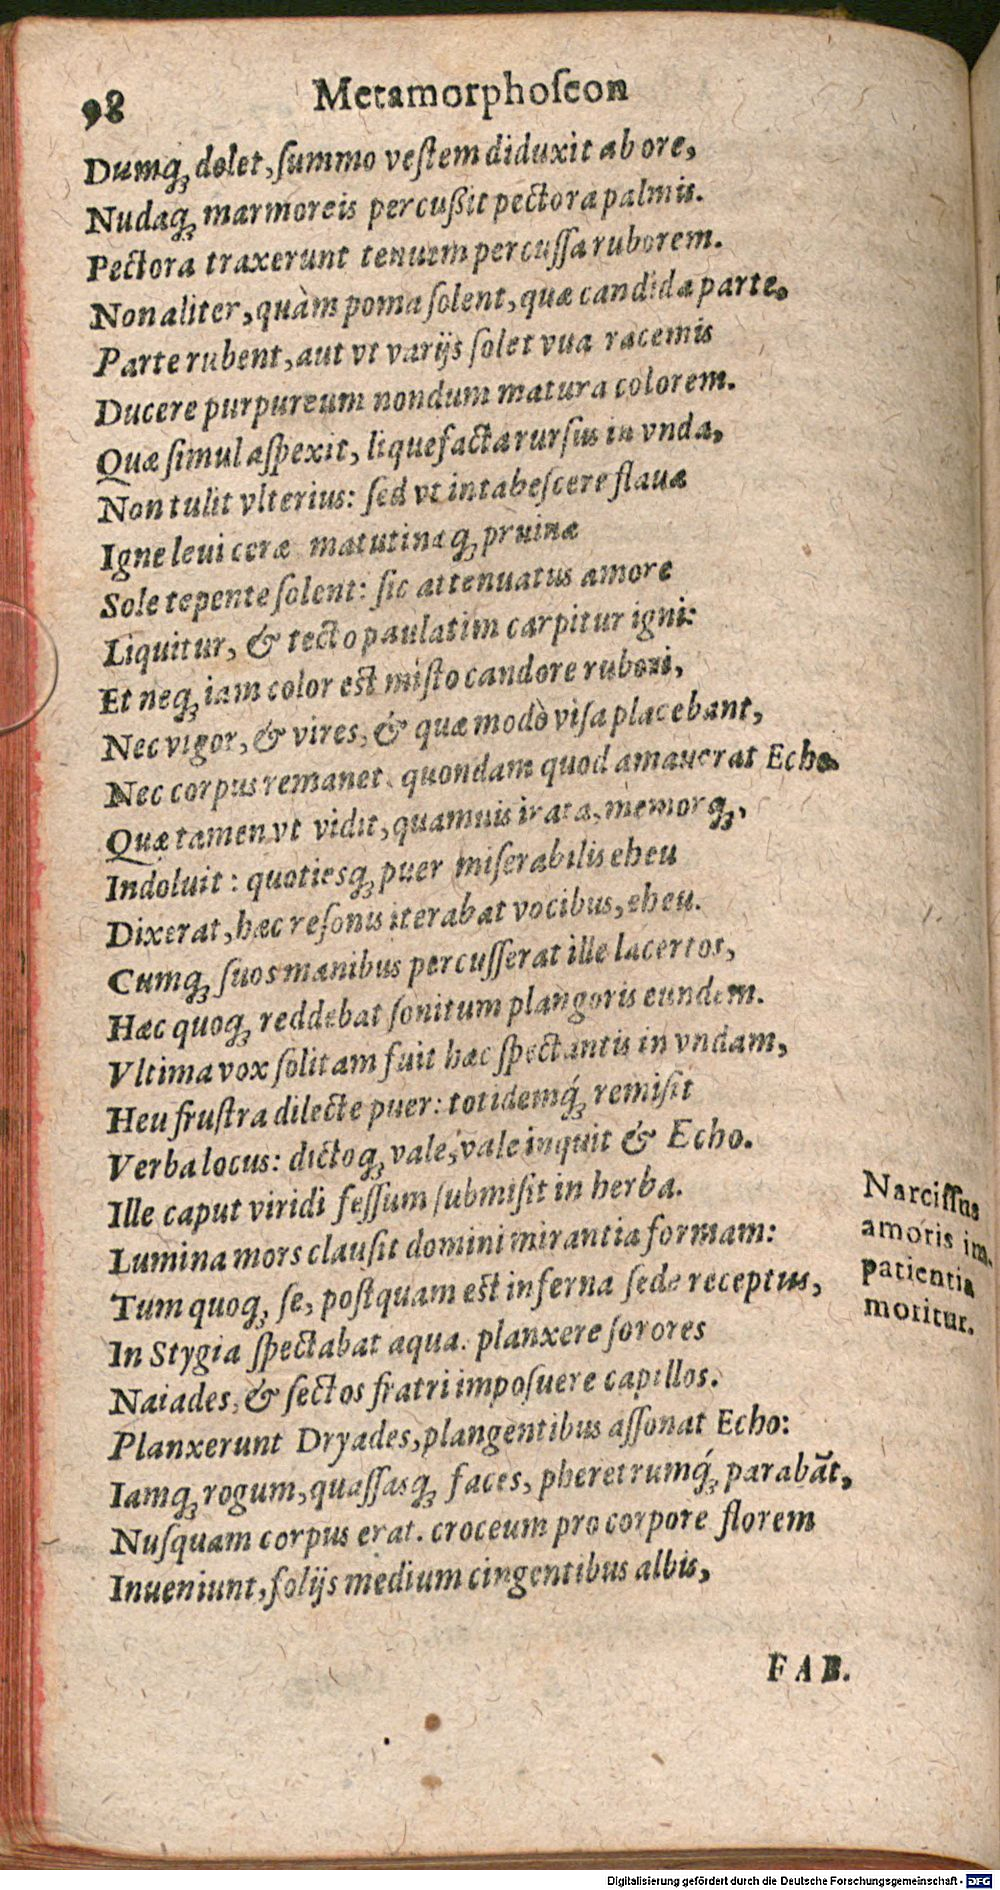 98 Metamorphoſeon
Dumq́ꝫ dolet, ſummo veſtem diduxit ab ore,
Nudaqꝫ marmoreis percußit pectora palmis.
Pectora traxerunt tenuem percuſſa ruborem.
Non aliter, quàm poma ſolent, quæ candida parte,
Parte rubent, aut vt varijs ſolet vua racemis
Ducere purpureum nondum matura colorem.
Quæ ſimul aſpexit, liquefacta rurſus in vnda,
Non tulit vlterius: ſed vt intabeſcere flauæ
Igne leui ceræ matutinæqꝫ pruinæ
Sole tepente ſolent: ſic attenuatus amore
Liquitur, & tecto paulatim carpitur igni:
Et neqꝫ iam color est miſto candore rubori,
Nec vigor, & vires, & quæ modò viſa placebant,
Nec corpus remanet, quondam quod amauerat Echo.
Quæ tamen vt vidit, quamuis irata, memorqꝫ,
Indoluit: quotiesqꝫ puer miſerabilis eheu
Dixerat, hæc reſonis iterabat vocibus, eheu.
Cumqꝫ ſuos manibus percuſſerat ille lacertos,
Hæc quoqꝫ reddebat ſonitum plangoris eundem.
Vltima vox ſolitam fuit hæc ſpectantis in vndam,
Heu fruſtra dilecte puer: totidemq́ꝫ remiſit
Verba locus: dictoqꝫ vale, vale inquit & Echo.
Ille caput viridi feſſum ſubmiſit in herba.
Lumina mors clauſit domini mirantia formam:
Tum quoqꝫ ſe, poſtquam est inferna ſede receptus,
In Stygia ſpectabat aqua. planxere ſorores
Naiades, & ſectos fratri impoſuere capillos.
Planxerunt Dryades, plangentibus aſſonat Echo:
Iamqꝫ rogum, quaſſasqꝫ faces, pheretrumq́ꝫ parabãt,
Nuſquam corpus erat. croceum pro corpore florem
Inueniunt, folijs medium cingentibus albis,
Narciſſus
amoris im-
patientia
moritur.
FAB.
Digitalisierung gefördert durch die Deutsche Forschungsgemeinschaft - DFG